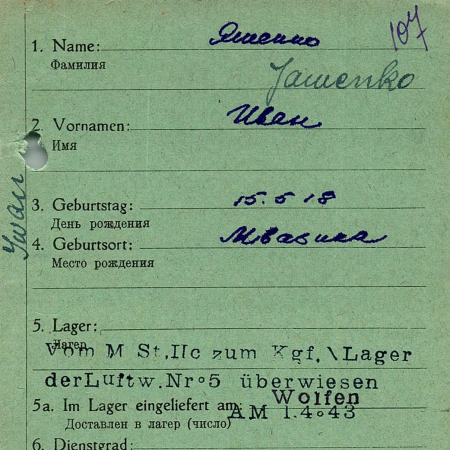 107
1. Name: Яшенко
Фамилия
Jaшenko
2. Vornamen: Иван
Имя
Iwan
3. Geburtstag: 15.5 18
День рождения
4. Geburtsort:
Место рождения
5. Lager:
Лагерь
Vom M St,IIc zum Kgf,\Lager
derLuftw.Nr°5 überwiesen
Wolfen
5a. Im Lager eingeliefert am: AM 1.4.43
Доставлен в лагерь (число)
6. Dienstgrad: